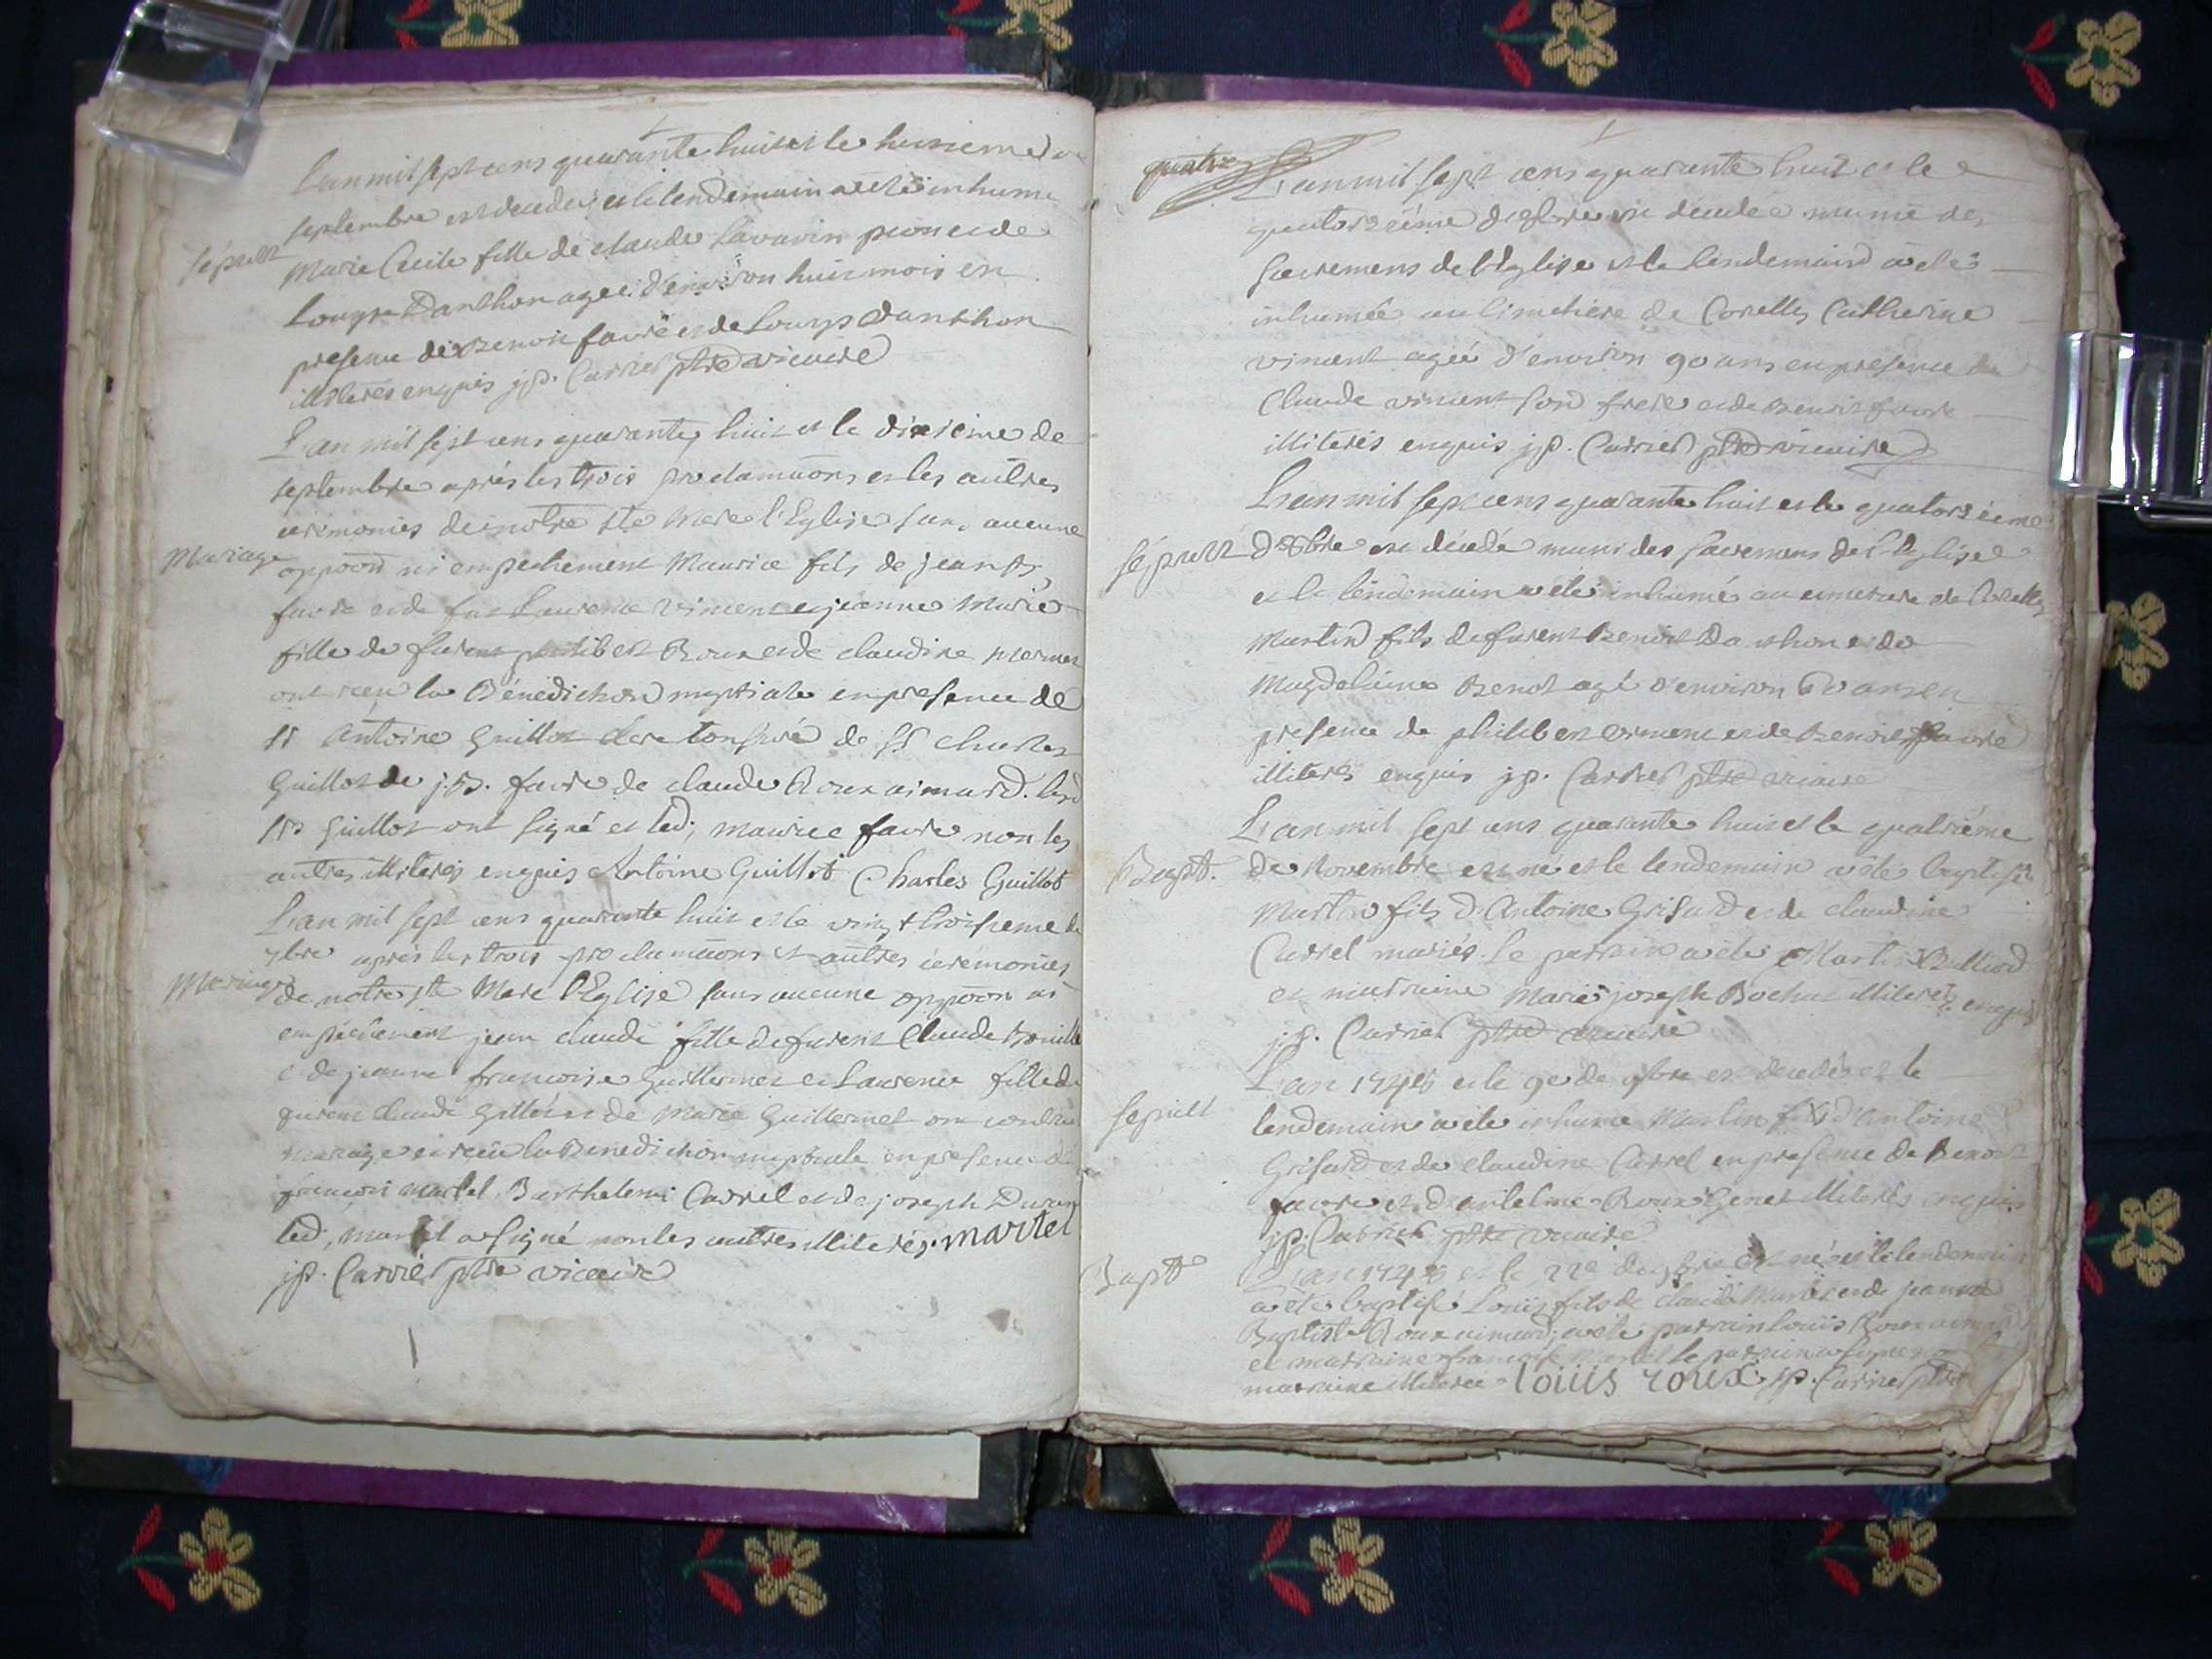 L'an mil sept cens quarante huit et le huitieme de
septembre est decedée et le lendemain a eté inhumé
sépult
Marie Cecile fille de claude Savarin pion et de
Louyse Danthon agée d'environ huit mois en
presence de Benoit favre et de Louys Danthon
illiterés enquis jp. Carrier ptre vicaire
L'an mil sept cens quarante huit et le dixieme de
septembre aprés les trois proclamaõns et les autres
ceremonies de notre ste Mere l'Eglise sans aucune
Mariage
oppoõn ni empechement Maurice fils de jean
favre et de Laurence vincent et jeanne Marie
fille de furent philibert Roux et de claudine mermet
ont reçu la Bénédiction nuptiale en presence de
sr Antoine Guillot clerc tonsuré de sr Charles
Guillot de j.B. favre de claude Roux aimard. lesd
srs Guillot ont signé et led; maurice favre non les
autres illiterés enquis Antoine Guillot Charles Guillot
L'an mil sept cens quarante huit et le vingt troisieme de
7bre aprés les trois proclamaõns et autres ceremonies
Mariage
de notre ste Mere l'Eglise sans aucune oppoõn ni
empechement jean claude fille de furent Claude
et de jeanne francoise Guillermet et Laurence fille de
furent claude et de Marie Guillermet ont contracté
mariage et reçu la Benediction nuptiale en presence de
françois martel Barthelemi Carrel et de joseph
led; martel a signé non les autres illiterés. martel
jp. Carrier ptre vicaire
quatre
L'an mil sept cens quarante huit et le
quatorzieme d'8bre est decedée munie des
sacremens de l'Eglise et le lendemain a eté
inhumée au Cimetiere de Corcelles Catherine
vincent agée d'environ 90 ans en presence de
Claude vincent son frere et de Benoit favre
illiterés enquis jp. Carrier ptre vicaire
L'an mil sept cens quarante huit et le quatorzieme
sépult
d'8bre est décédé muni des sacremens de l'Eglise
et le lendemain a eté inhumé au cimetiere de Corcelles
Martin fils de furent Benoit Danthon et de
Magdelaine Benoit agé d'environ 60 ans en
presence de philibert vincent et de Benoit favre
illiterés enquis jp. Carrier ptre vicaire
L'an mil sept cens quarante huit et le quatriéme
Bapt.
de Novembre est né et le lendemain a eté baptisé
Martin fils d'Antoine Grisard et de claudine
Carrel mariés. le parrain a eté Martin Billiod
et marraine Marie joseph Bochut illiterés enquis
j.p. Carrier ptre vicaire
L'an 1748 et le 9e de 9bre est decedé et le
sepult
lendemain a eté inhumé Martin fils d'Antoine
Grisard et de claudine Carrel en presence de Benoit
favre et d'antelme Roux Genet illiterés enquis
jp. Carrier ptre vicaire
Bapt
L'an 1748 et le 22e de 9bre est né et le lendemain
a eté baptisé Louis fils de claude Martel et de jeanne
Baptiste Roux aimard; a eté parrain Louis Roux aimard
et marraine francoise Martel le parrain a signé non la
marraine illiterée Louis roux jp. Carrier ptre